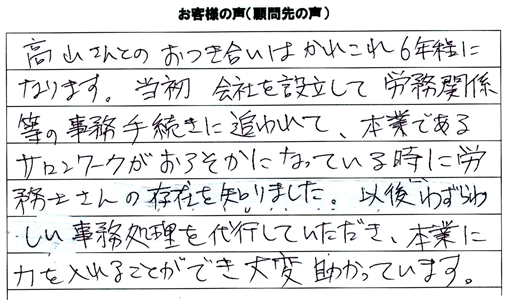 お客様の声(顧問先の声)
高山さんとの おつき合いは かれこれ 6年程に
なります。当初 会社を設立して 労務関係
等の事務手続きに追われて、本業である
サロンワークがおろそかになっている時に労
務士さんの存在を知りました。以後わずらわ
しい事務処理を代行していただき、本業に
力を入れることができ大変助かっています。